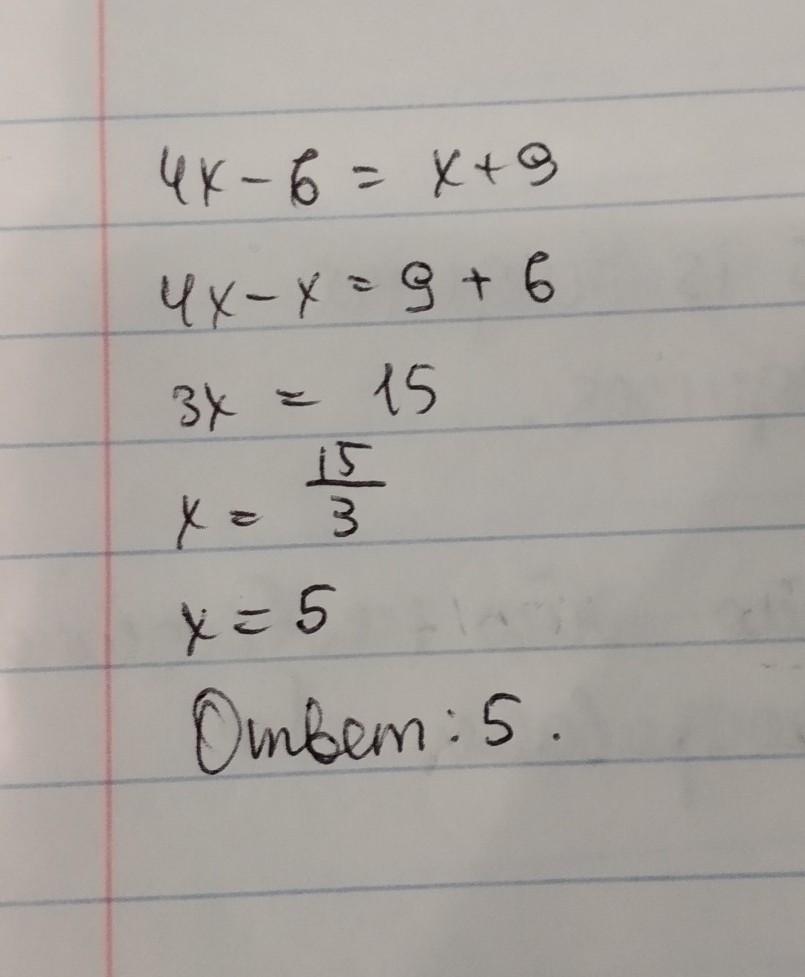 4x - 6 = x + 9
4x - x = 9 + 6
3x = 15
x = 15/3
x = 5
Ответ: 5.